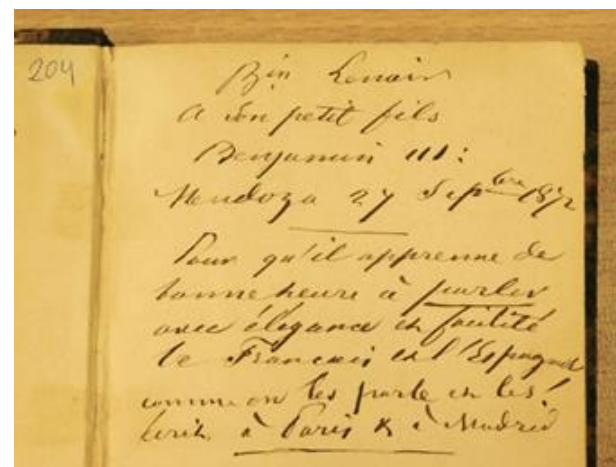 204
Bin Lenoir
A son petit fils
Benjamin III:
Mendoza 27 Sepbre 1872
Pour qu'il apprenne de
bonne heure à parler
avec élégance et facilité
le Francais et l'Espagnol
comme on les parle et les
écrit, à Paris & à Madrid